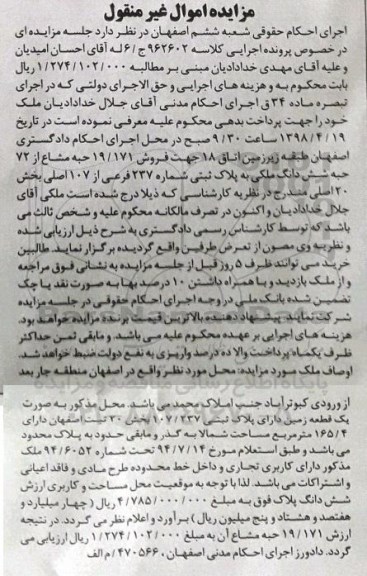 مزایده اموال غیر منقول
اجرای احکام حقوقی شعبه ششم اصفهان در نظر دارد جلسه مزایده ای
در خصوص پرونده اجرایی کلاسه ۹۶۲۶۰۲ ج/۶ له آقای احسان امیدیان
و علیه آقای مهدی خدادادیان مبنی بر مطالبه ۱/۲۷۴/۱۰۲/۰۰۰ ریال
بابت محکوم به و هزینه های اجرایی و حق الاجرای دولتی که در اجرای
تبصره ماده ۳۴ ق اجرای احکام مدنی آقای جلال خدادادیان ملک
خود را جهت پرداخت بدهی محکوم علیه معرفی نموده است در تاریخ
۱۳۹۸/۴/۱۹ ساعت ۹/۳۰ صبح در محل اجرای احکام دادگستری
اصفهان طبقه زیرزمین اتاق ۱۸ جهت فروش ۱۹/۱۷۱ حبه مشاع از ۷۲
حبه شش دانگ ملکی به پلاک ثبتی شماره ۲۳۷ فرعی از ۱۰۷ اصلی بخش
۲۰ اصلی مندرج در نظریه کارشناسی که ذیلا درج شده است ملکی آقای
جلال خدادادیان و اکنون در تصرف مالکانه محکوم علیه و شخص ثالث می
باشد که توسط کارشناس رسمی دادگستری به شرح ذیل ارزیابی شده
و نظریه وی مصون از تعرض طرفین واقع گردیده برگزار نماید. طالبین
خرید می توانند ظرف ۵ روز قبل از جلسه مزایده به نشانی فوق مراجعه
و از ملک بازدید و با همراه داشتن ۱۰ درصد بها به صورت نقد یا چک
تضمین شده بانک ملی در وجه اجرای احکام حقوقی در جلسه مزایده
شرکت نمایند. پیشنهاد دهنده بالاترین قیمت برنده مزایده خواهد بود.
هزینه های اجرایی بر عهده محکوم علیه می باشد. و مابقی ثمن حداکثر
ظرف یکماه پرداخت والا ده درصد واریزی به نفع دولت ضبط خواهد شد.
اوصاف ملک مورد مزایده: محل مورد نظر واقع در اصفهان منطقه جار بعد
از ورودی کبوتر آباد جنب املاک محمد می باشد. محل مذکور به صورت
یک قطعه زمین دارای پلاک ثبتی ۱۰۷/۲۳۷ بخش ۲۰ ثبت اصفهان دارای
۱۶۵/۴ مترمربع مساحت شمالا به گذر و مابقی حدود به پلاک محدود
می باشد و طبق استعلام مورخ ۹۴/۷/۱۴ تحت شماره ۹۴/۶۰۵۲ ملک
مذکور دارای کاربری تجاری و داخل خط محدوده طرح هادی و فاقد اعیانی
و اشتراکات می باشد. لذا با توجه به موقعیت محل مساحت و کاربری ارزش
شش دانگ پلاک فوق به مبلغ ۴/۷۸۵/۰۰۰/۰۰۰ ریال (چهار میلیارد و
هفتصد و هشتاد و پنج میلیون ریال) برآورد و اعلام نظر می گردد. در نتیجه
ارزش ۱۹/۱۷۱ حبه مشاع آن به مبلغ ۱/۲۷۴/۱۰۲/۰۰۰ ریال ارزیابی می
گردد. دادورز اجرای احکام مدنی اصفهان. ۴۷۰۵۶۶ / م الف